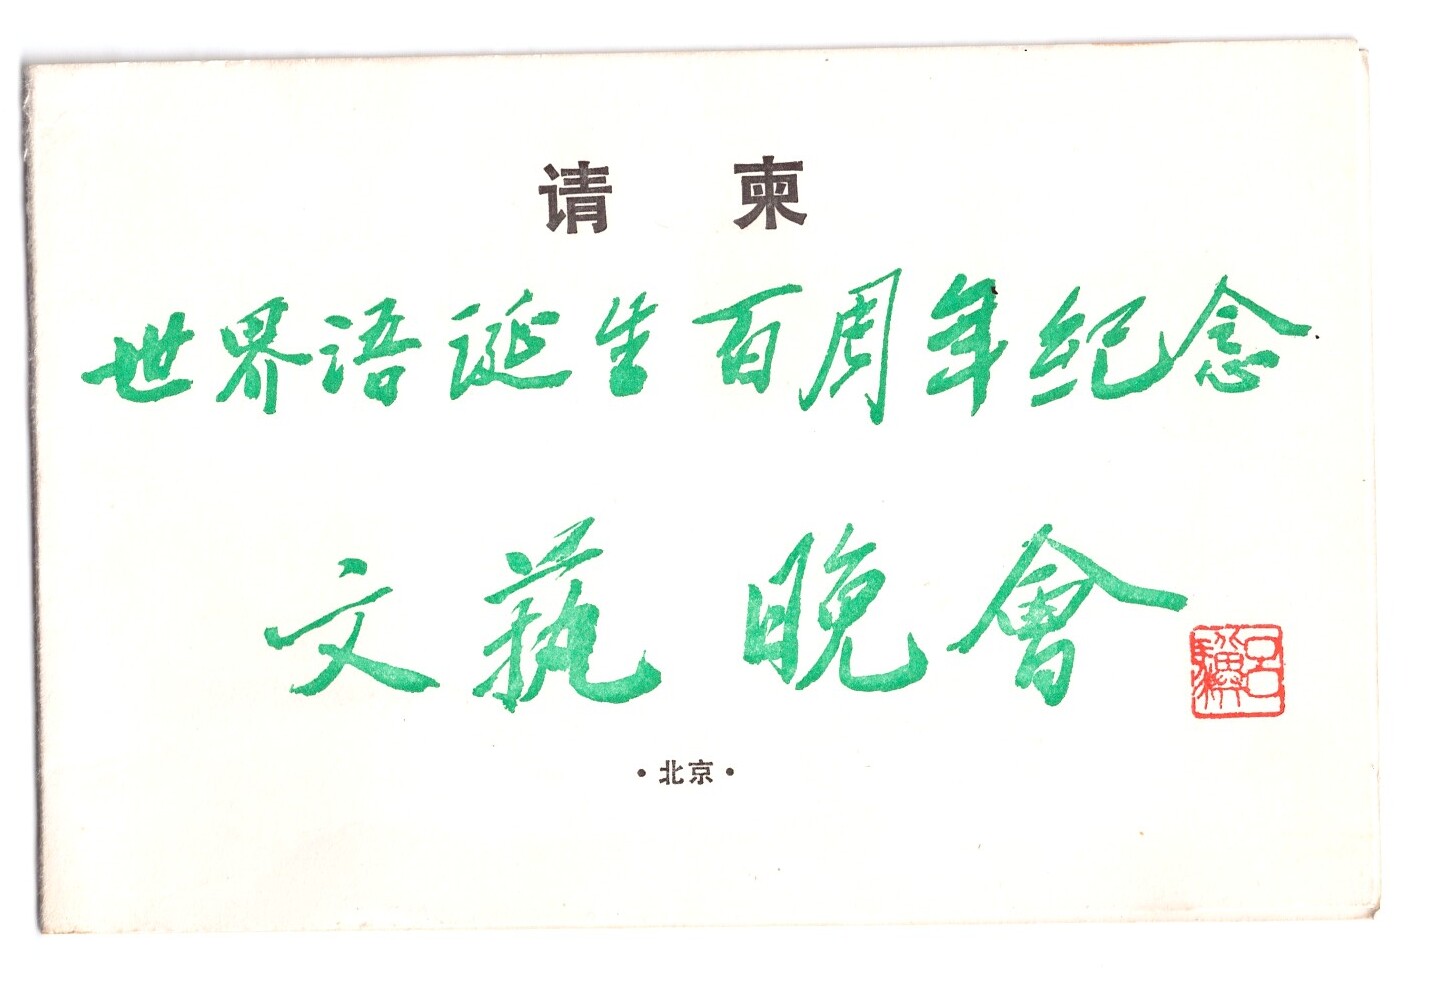 请柬
世界语诞生百周年纪念
文蓺晚會
呂驥
·北京·